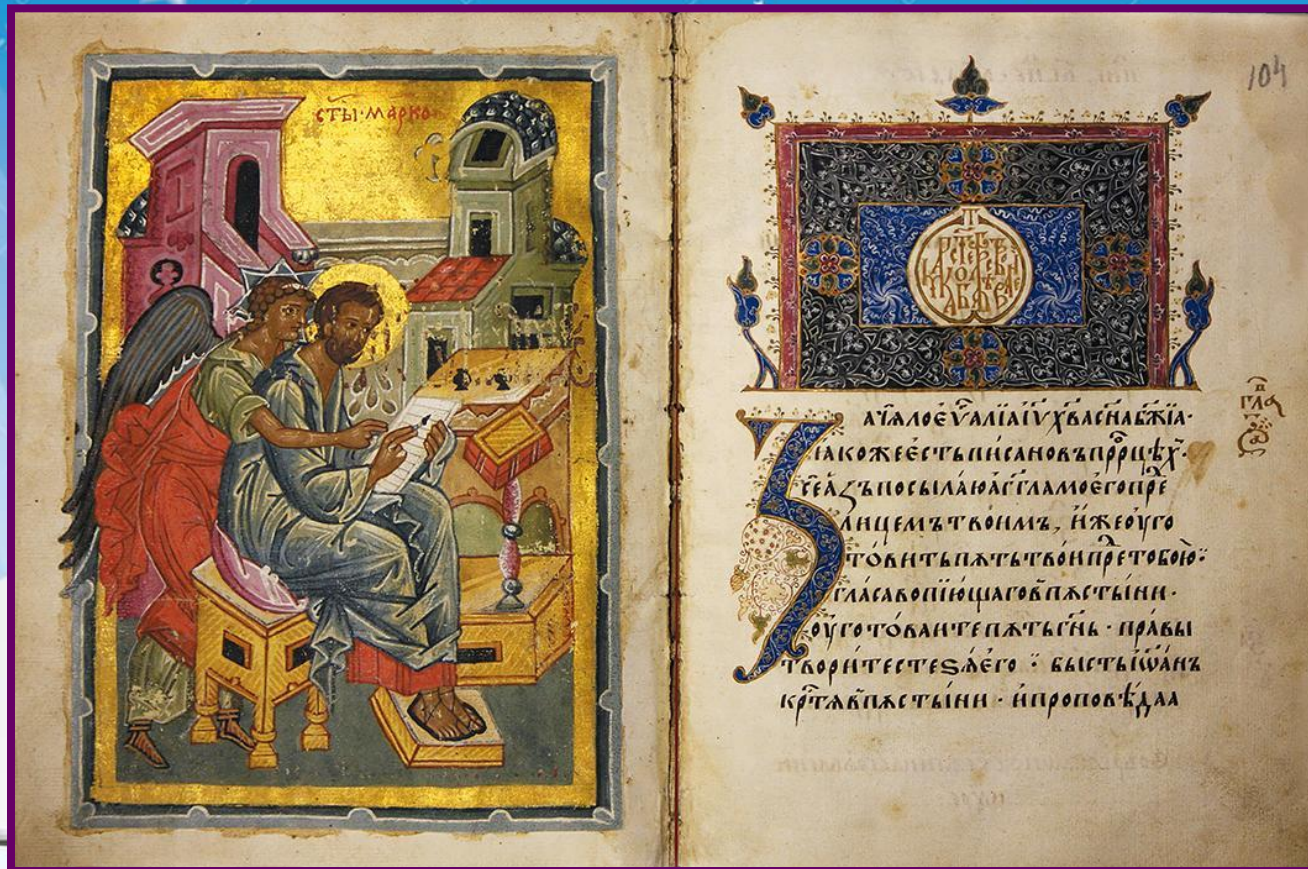 СТ҃Ы·МАРКО
104
АЧѦЛОЕѴ҃АЛІАІѴ҃ХВ҃АСН҃АБЖ҃ІА·
ІАКОЖЕЕ́СТЬПИСАНОВЪПРⷪ҇РЦѢХ·
СЕА́ꙀЪПОСЫЛА́ЮА́Г҃ГЛАМОЕ́ГОПРЕⷣ
ЛИЦЕМЪТВОИМЪ, И́ЖЕОУ҆ГО
ТО́ВИТЬПѪТЬТВО́ИПРЕⷣТОБОЮ·:
ГЛА́САВОПІЮ́ЩАГОВⸯПѪСТЫ́НИ·
ОУ҆ГОТО́ВАИТЕПѪТЬГН҃Ь · ПРА́ВЫ
ТВОРИ́ТЕСТЕЅѦ̀Е҆ГО̀ ·: БЫ́СТЬІѠ҃АНЪ
КРⷭ҇ТѦВⸯПѪСТЫ́НИ · И҆ПРОПОВѢ́ДАА